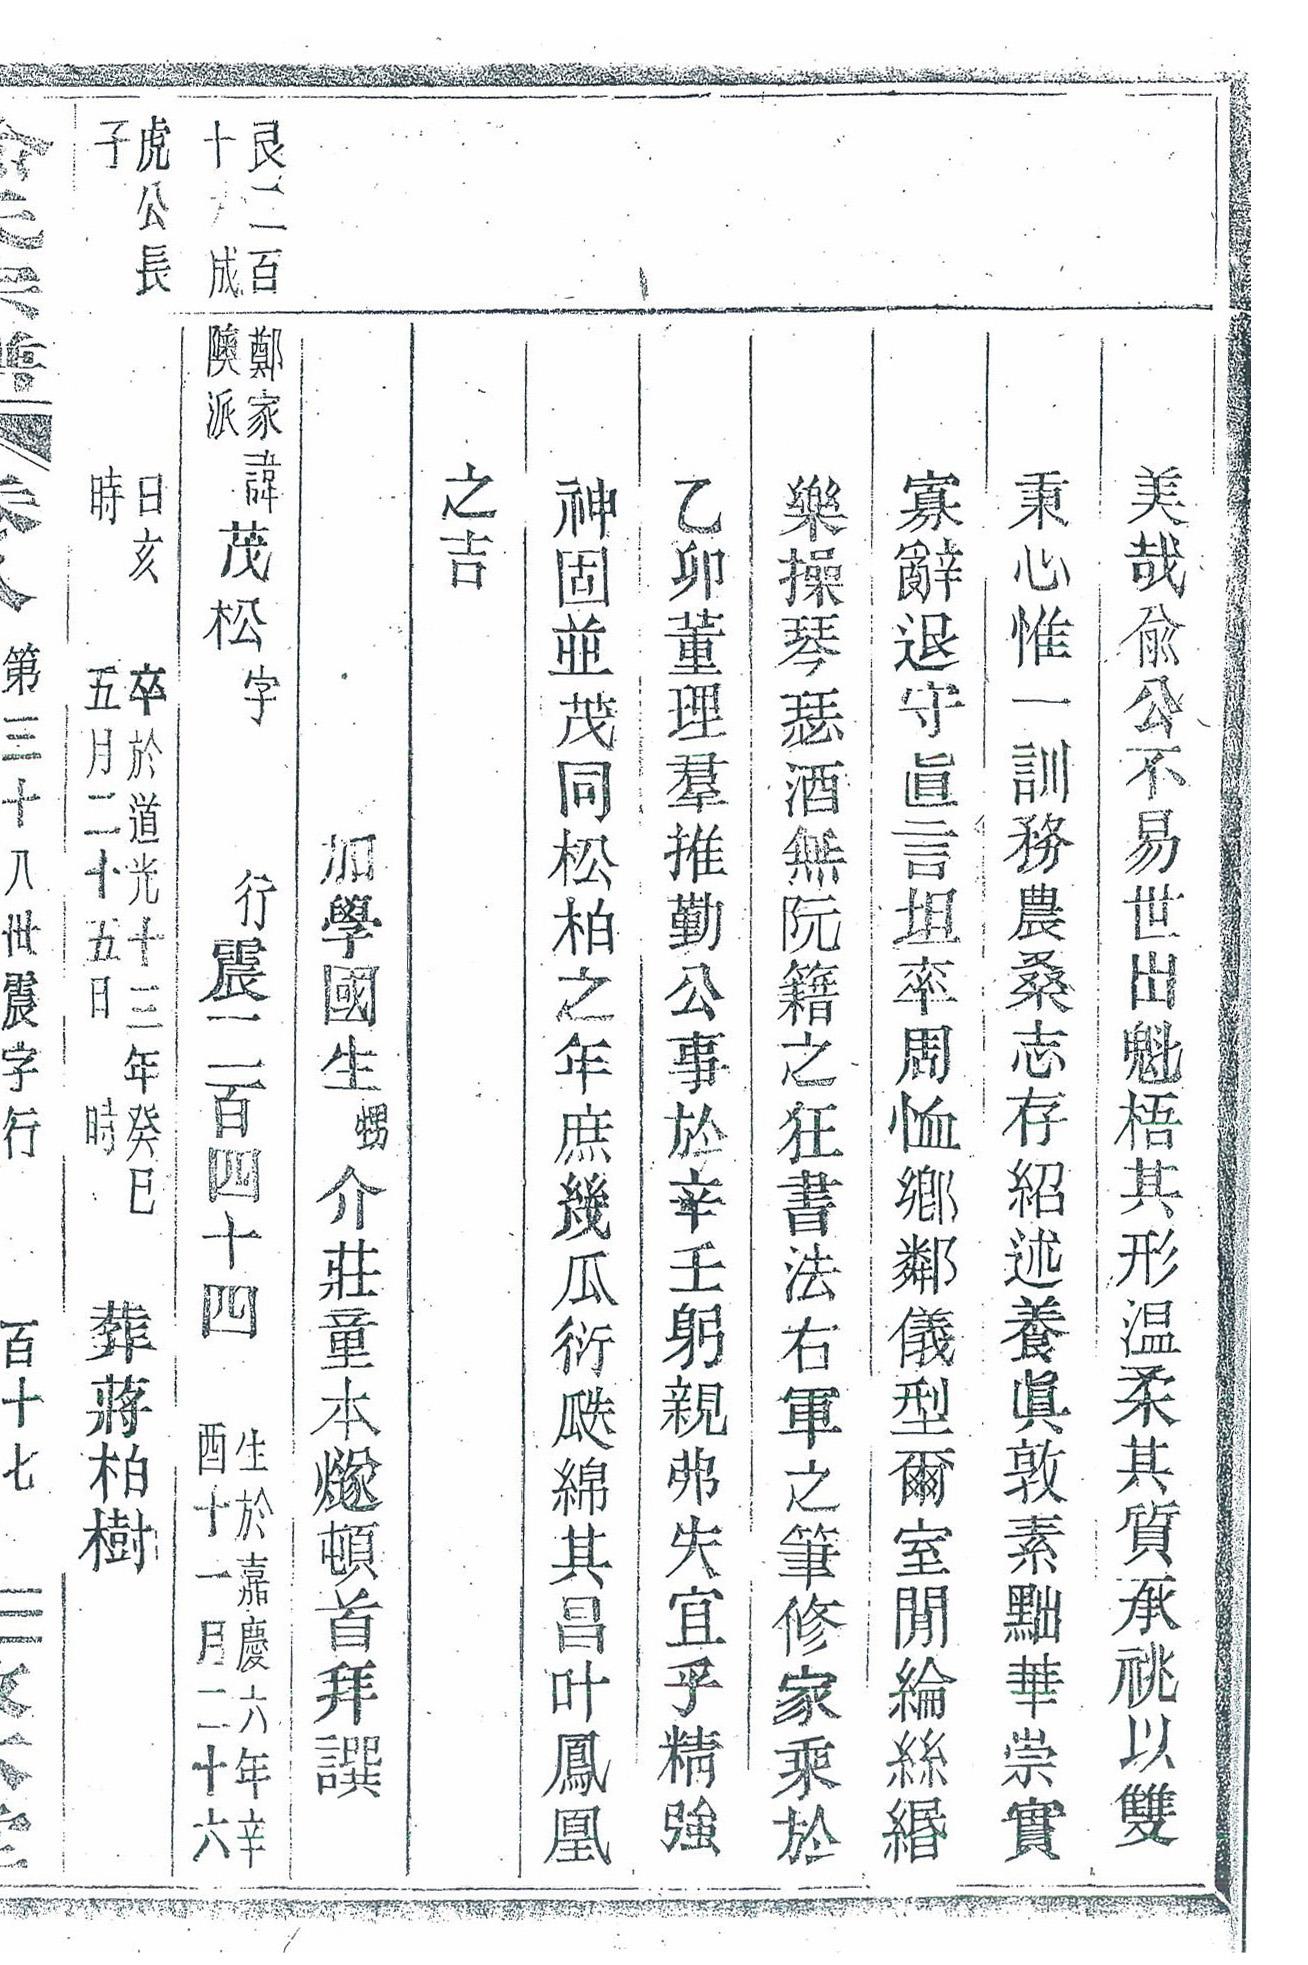 美哉俞公不易世出魁梧其形温柔其質承祧以雙
秉心惟一訓務農桑志存紹述養眞敦素黜華崇實
寡辭退守眞言坦率周恤鄉鄰儀型爾室閒綸絲緡
樂操琴瑟酒無阮籍之狂書法右軍之筆修家乘於
乙卯董理羣推勤公事於辛壬躬親弗失宜乎精強
神固並茂同松柏之年庶幾瓜衍瓞綿其昌叶鳳凰
之吉
加學國生甥介莊童本燧頓首拜譔
艮二百
十 成
鄭家
隩派
諱茂松字
行震一二百四十四
生於嘉慶六年辛
酉十一月二十六
虎公長
子
日亥
時
卒於道光十三年癸巳
五月二十五日 時
葬蔣柏樹
俞氏宗譜 卷八 第三十八世震字行 百十七